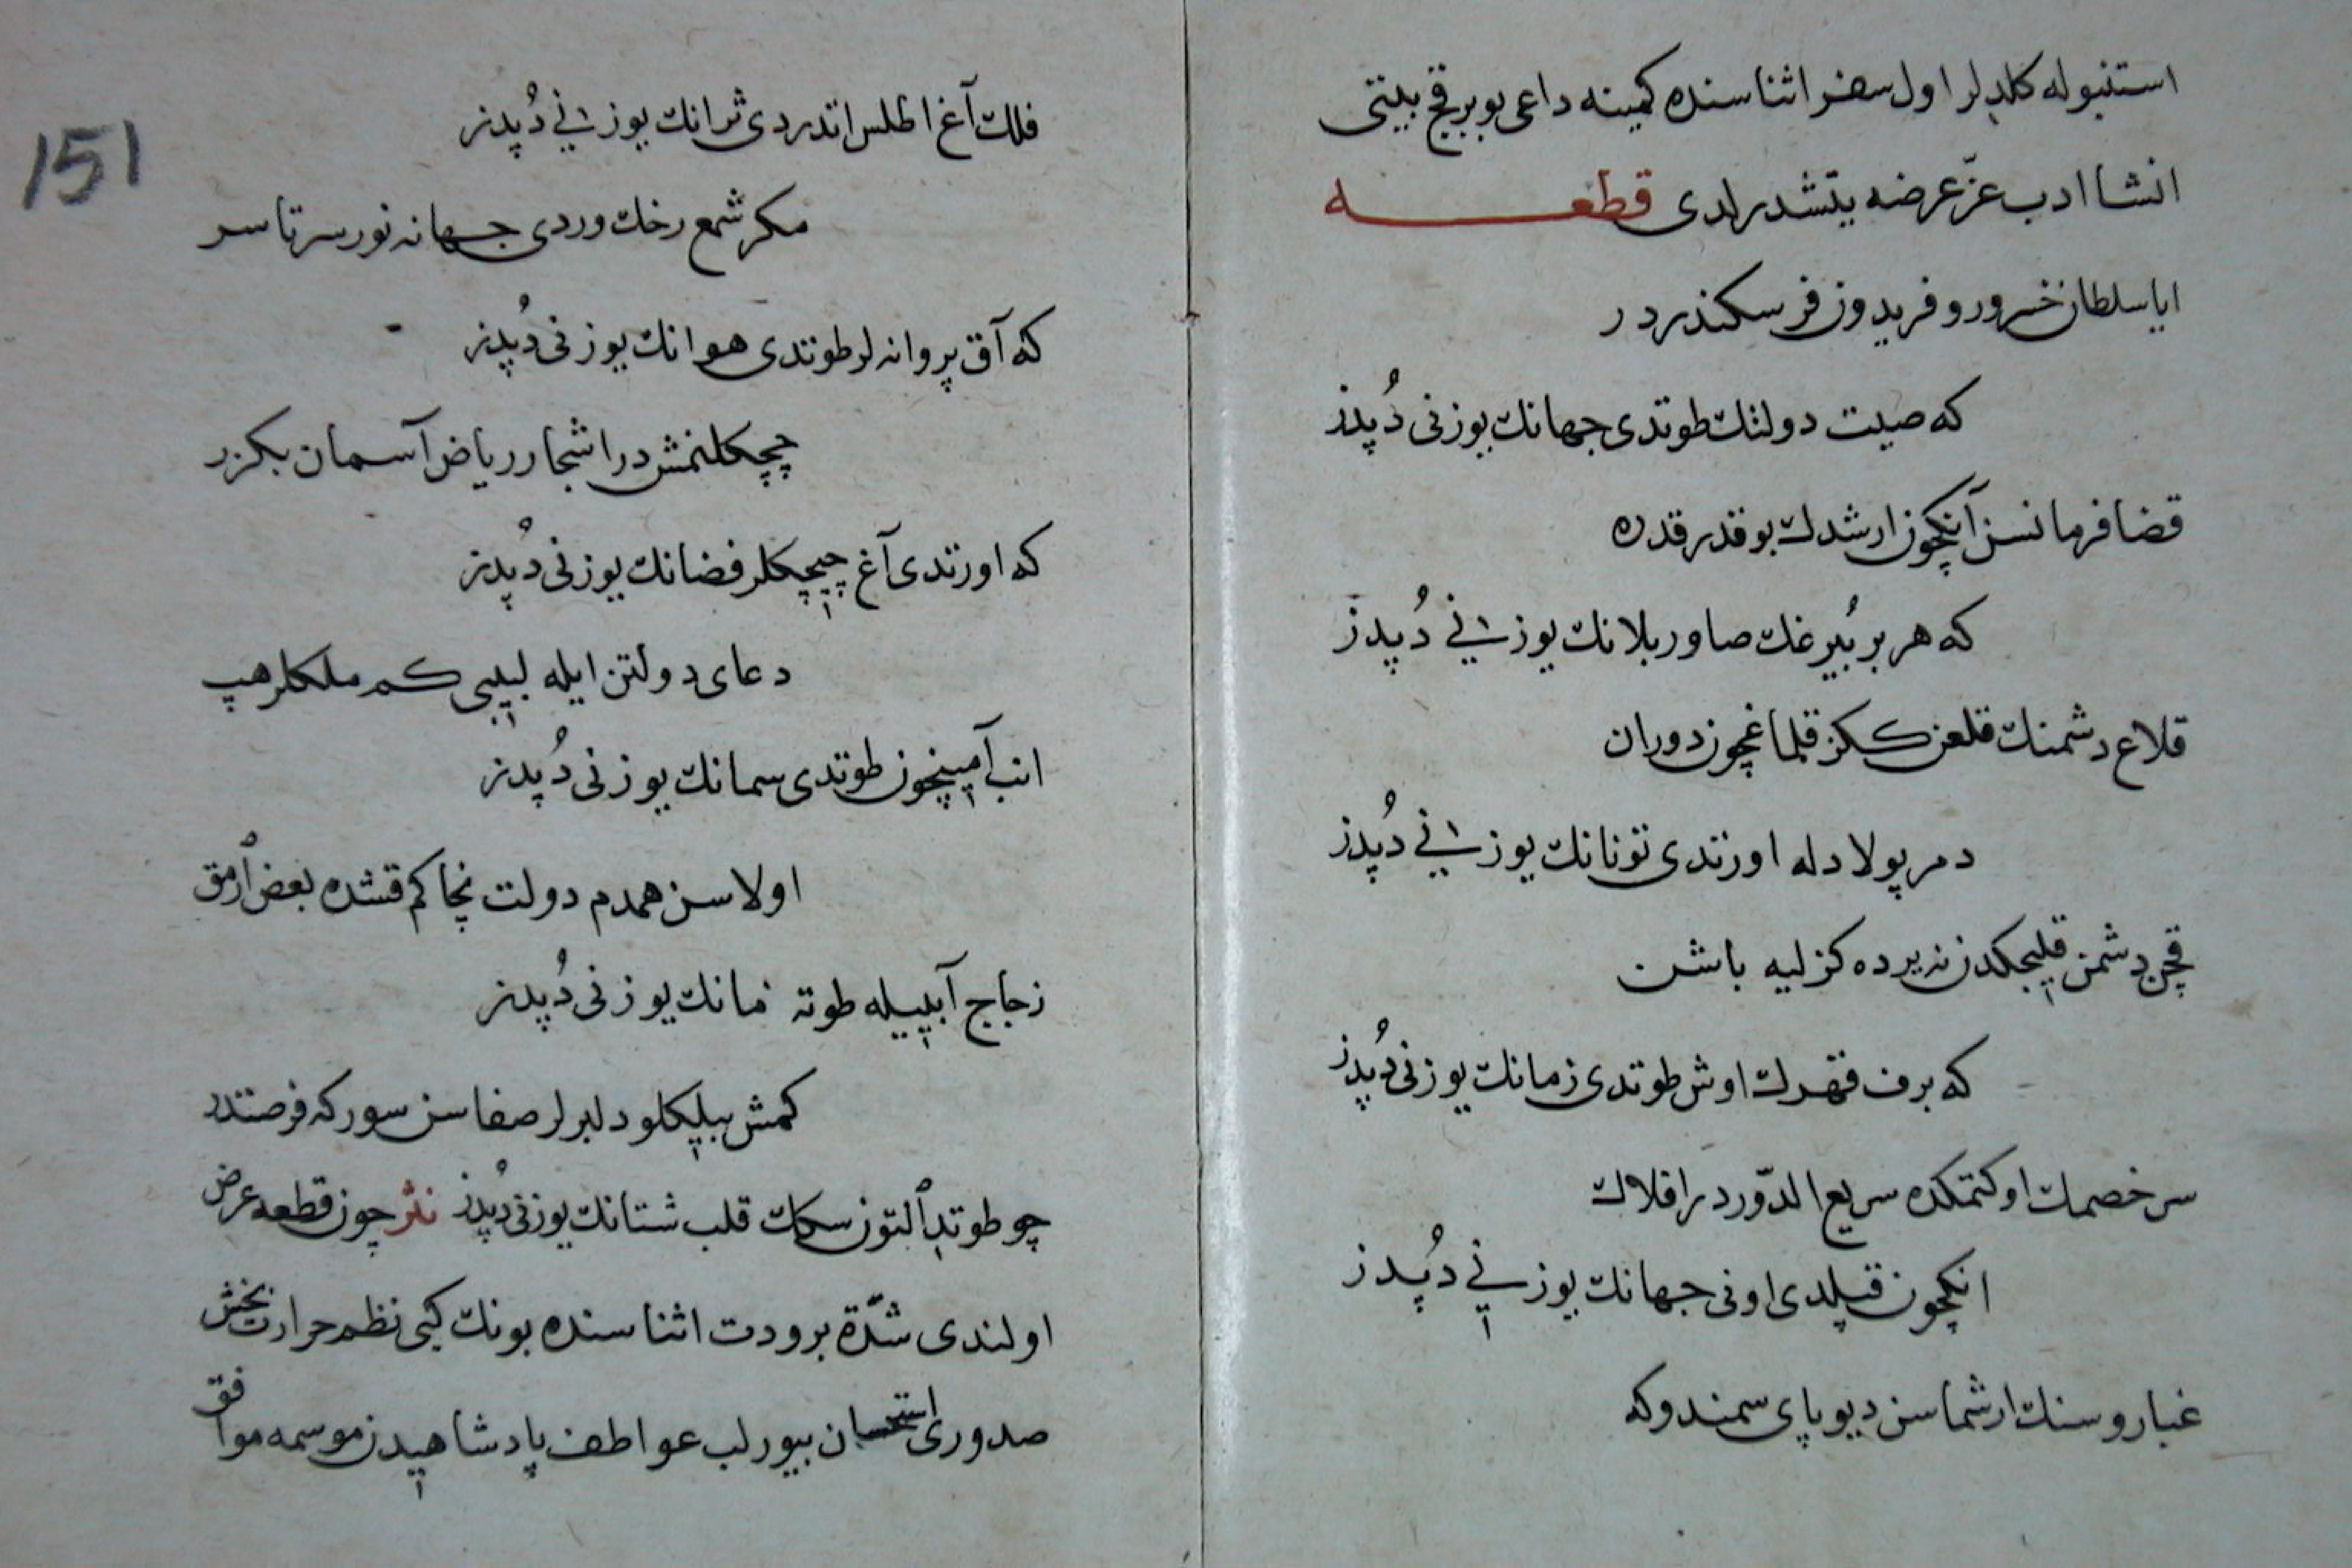 استنبوله كلدیلر اول سفر اثناسنده كمینه داعی بو بر قچ بیتی
انشا ادب عزّ عرضه یتشدرلدی قطعه
ایا سلطان خسرو رو فریدون فر سكندر در
كه صیت دولتك طوتدی جهانك یوزنی دُپدز
قضا فرمانسن آنكچون ارشدك بو قدر قدره
كه هر بر بُیرغك صاور بلانك یوزنی دُپدز
قلاع دشمنك قلعن كسكز قلماغچون دوران
دمر پولادله اورتدی تونانك یوزنی دُپدز
قچن دشمن قلیچكدن نه یرده كزلیه باشن
كه برف قهرك اوش طوتدی زمانك یوزنی دُپدز
سر خصمك اوكتمكده سریع الدّور در افلاك
انكچون قیلدی اونی جهانك یوزنی دُپدز
غبار و سنك ارشماسن دیو پای سمندوكه
151
فلك آغ اطلس اندردی ثرانك یوزنی دُپدز
مكر شمع رخك وردی جهانه نور سرتاسر
كه آق پروانه لر طوتدی هوانك یوزنی دُپدز
چچكلنمش در اشجار ریاض آسمان بكزر
كه اورتدی آغ چیچكلر فضانك یوزنی دُپدز
دعای دولتن ایله لبیبی كم ملكلر هپ
انب آمینچون طوتدی سمانك یوزنی دُپدز
اولاسن همدم دولت نچاكم قشده بعض اُرمق
زجاج آبیله طوته مانك یوزنی دُپدز
كمش بیلكلو دلبرلر صفاسن سور كه فرصتدر
چو طوتدی اَلتون سكك قلب شتانك یوزنی دُپدز نثر چون قطعه عرض
اولندی شدّة برودت اثناسنده بونك كبی نظم حرارت بخش
صدوری استحسان بیورلب عواطف پادشاهیدن موسمه موافق